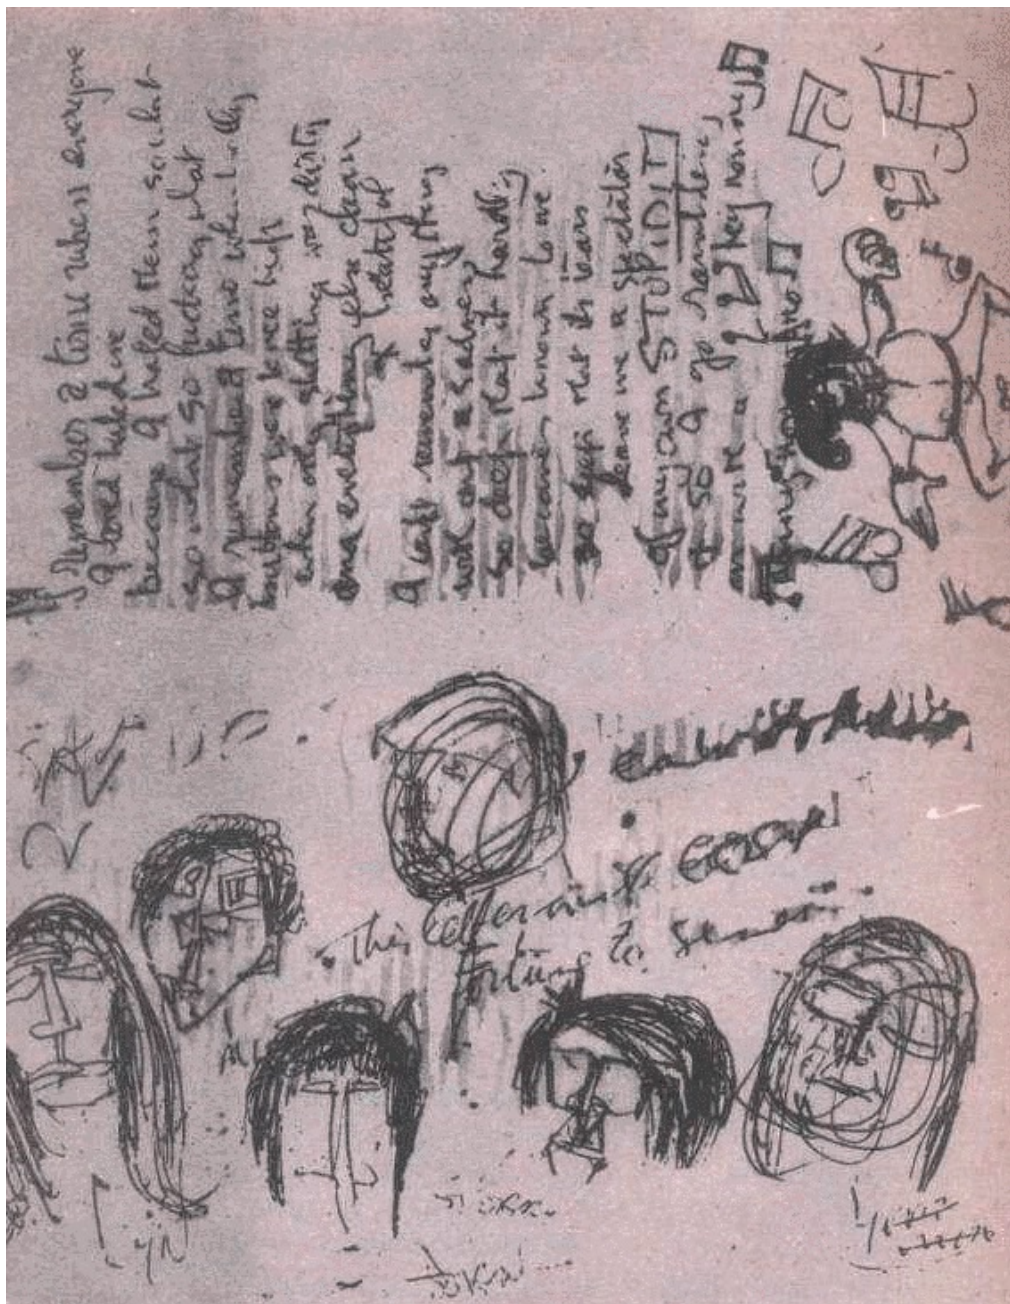 I remember a time when everyone
I loved hated me
because I hated them so what
so what so fucking what
I remember a time when belly
buttons were knee high
when only shitting was dirty
and everything else clean
& beautiful
I cant remember anything
without a sadness
so deep that it hardly
becomes known to me
so deep that its tears
leave me a spectator
of my own STUPIDITY
& so I go rambling
on with a hey nonny
nonny nonny no
This letter
fortune to